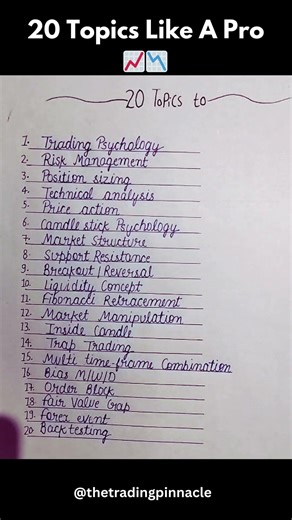 20 Topics Like A Pro
📈📉
20 Topics to
1. Trading Psychology
2. Risk Management
3. Position sizing
4. Technical analysis
5. Price action
6. Candle stick Psychology
7. Market Structure
8. Support Resistance
9. Breakout/Reversal
10. Liquidity Concept
11. Fibonacci Retracement
12. Market Manipulation
13. Inside Candle
14. Trap Trading
15. Multi time-frame Combination
16. Bias M/W/D
17. Order Block
18. Fair Value Gap
19. Forex event
20. Backtesting
@thetradingpinnacle